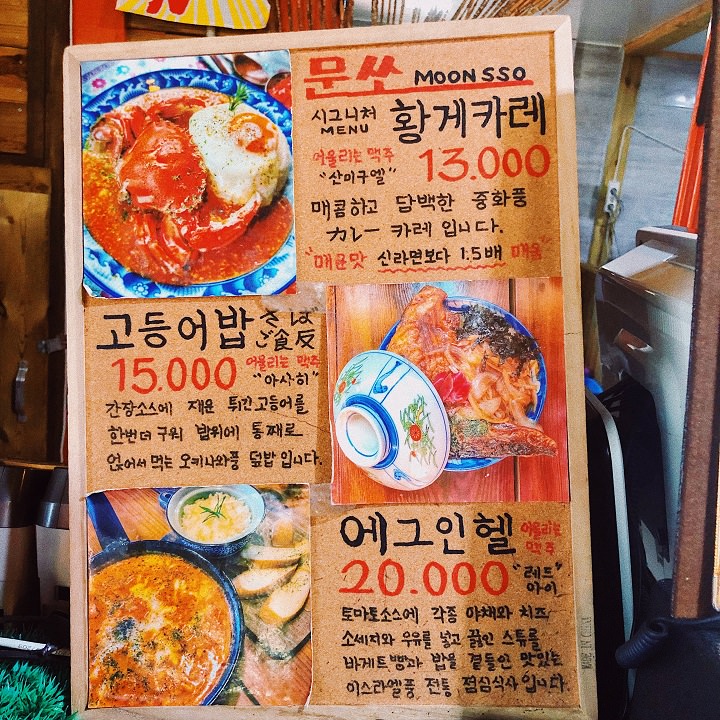 문쏘 MOONSSO
시그니처 MENU 황게카레
어울리는 맥주 "산미구엘" 13.000
매콤하고 담백한 중화풍
カレー 카레 입니다.
"매운맛 신라면보다 1.5배 매움"
고등어밥 さば ご食反
15.000 어울리는 맥주 "아사히"
간장소스에 재운 튀긴고등어를
한번더 구워 밥위에 통째로
얹어서 먹는 오키나와풍 덮밥 입니다.
에그인헬 어울리는 맥주
20.000 "레드아이"
토마토소스에 각종 야채와 치즈
소세지와 우유를 넣고 끓인 스튜를
바게트빵과 밥을 곁들인 맛있는
이스라엘풍 전통 점심식사입니다.
MADE IN CHINA